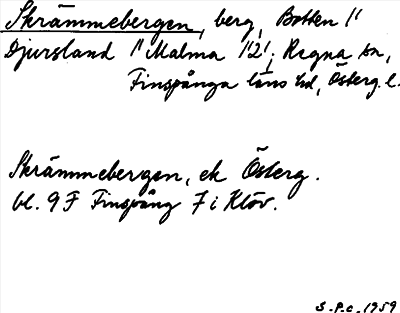 Skrämmebergen, berg, Botten 1'
Djursland 1' Malma 1'2'; Regna sn,
Finspånga läns hd, Österg. l.
Skrämmebergen, ek Österg.
bl. 9 F Finspång 7 i Klöv.
S.P.c. 1959